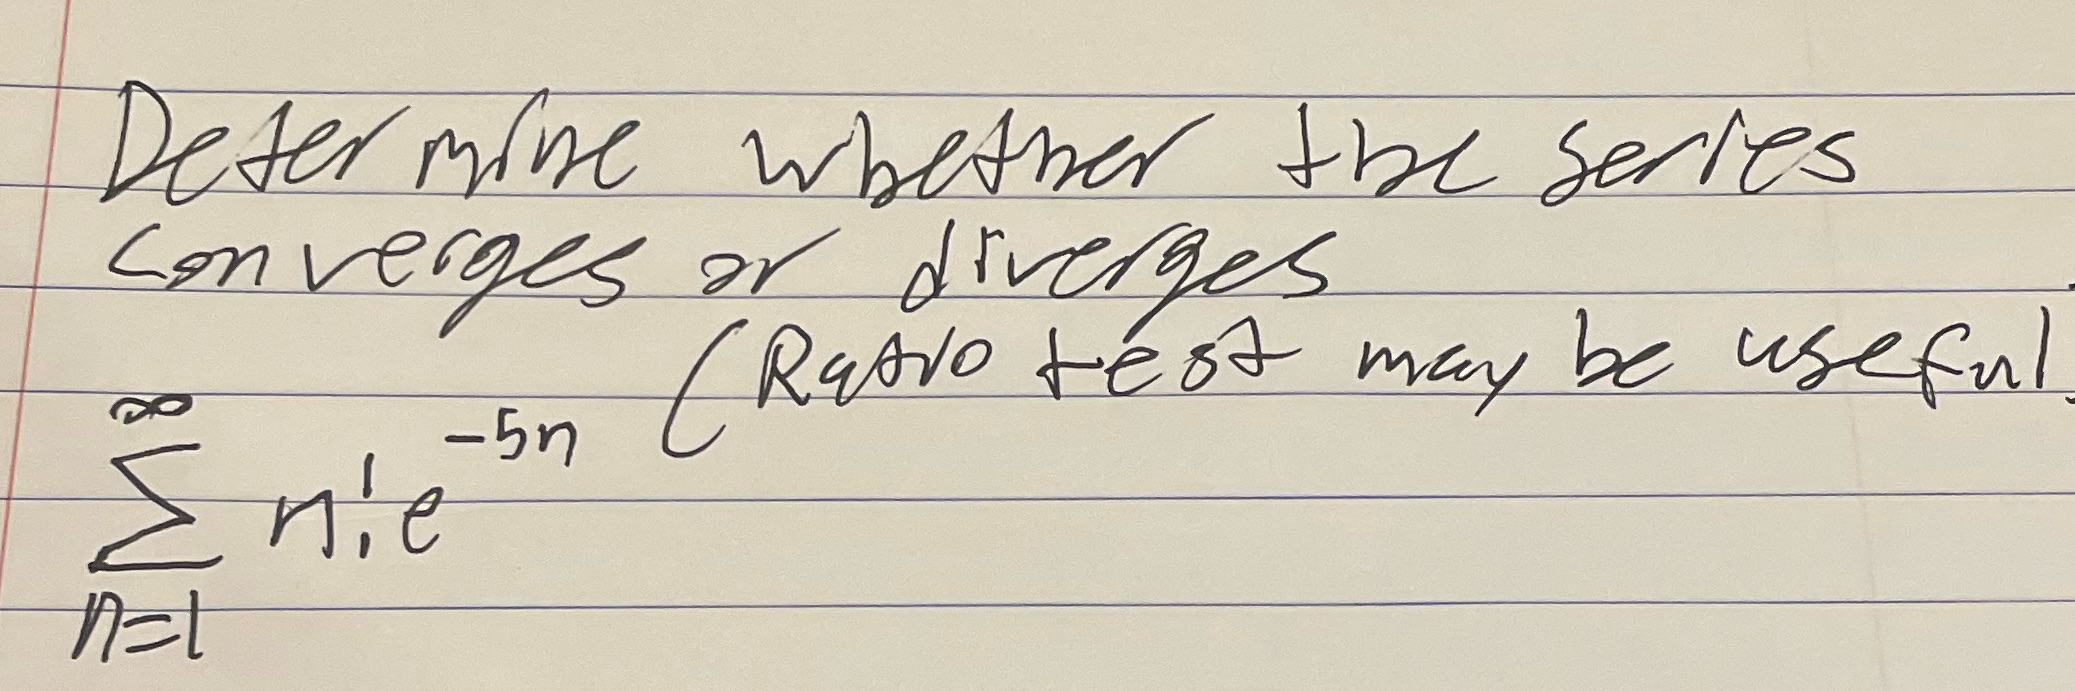 Determine whether the series
converges or diverges
(Ratio test may be useful)
∞
∑ n! e^{-5n}
n=1